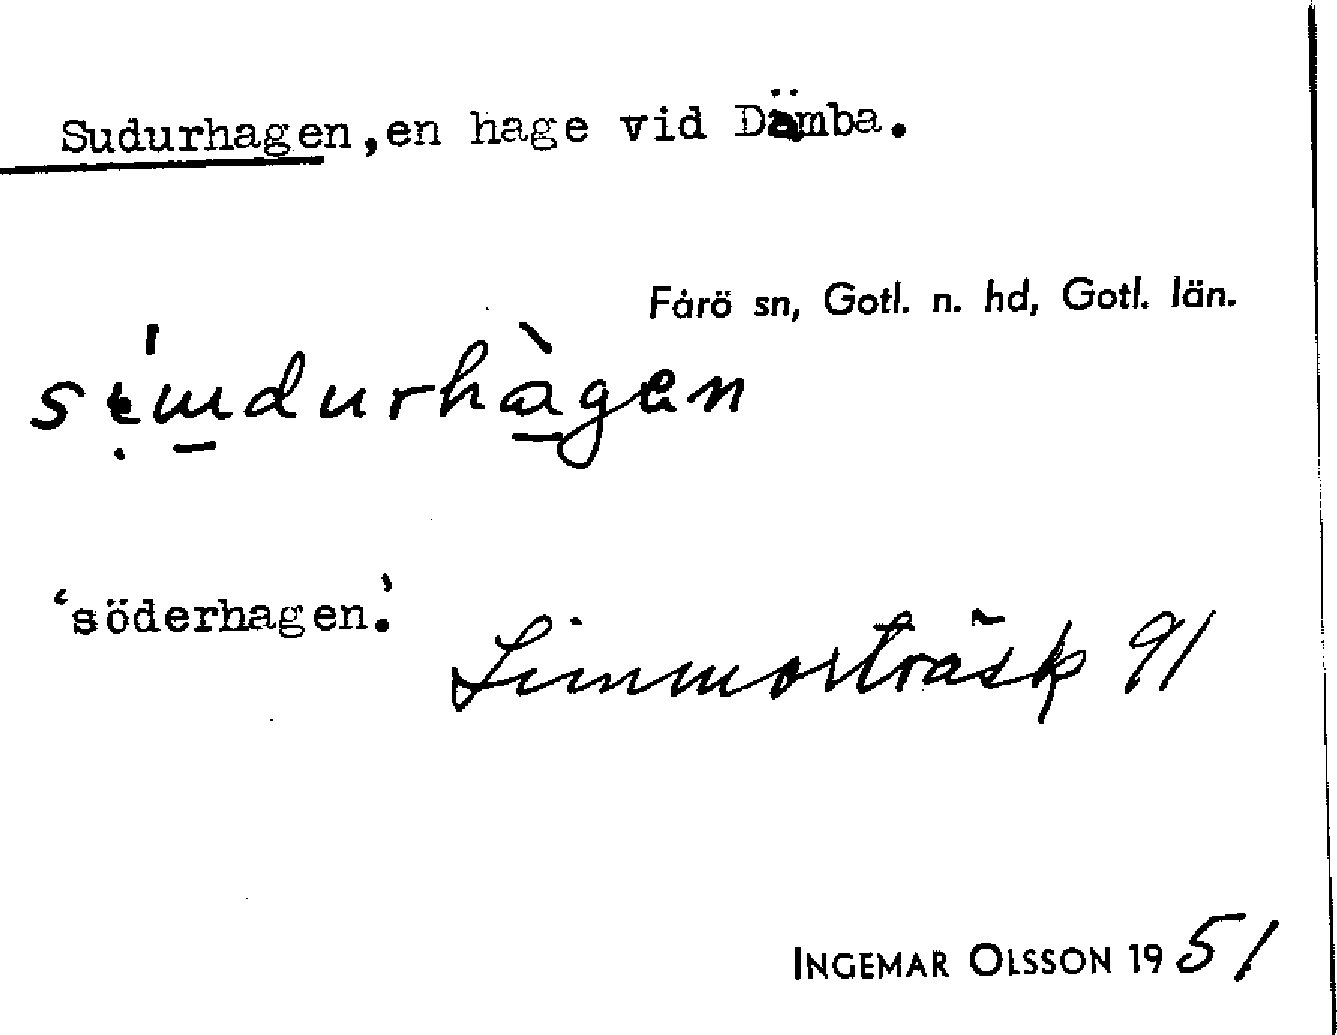 Sudurhagen, en hage vid Dämba.
Fårö sn, Gotl. n. hd, Gotl. län.
‘söderhagen.’
Limmorträsk 91
INGEMAR OLSSON 1951